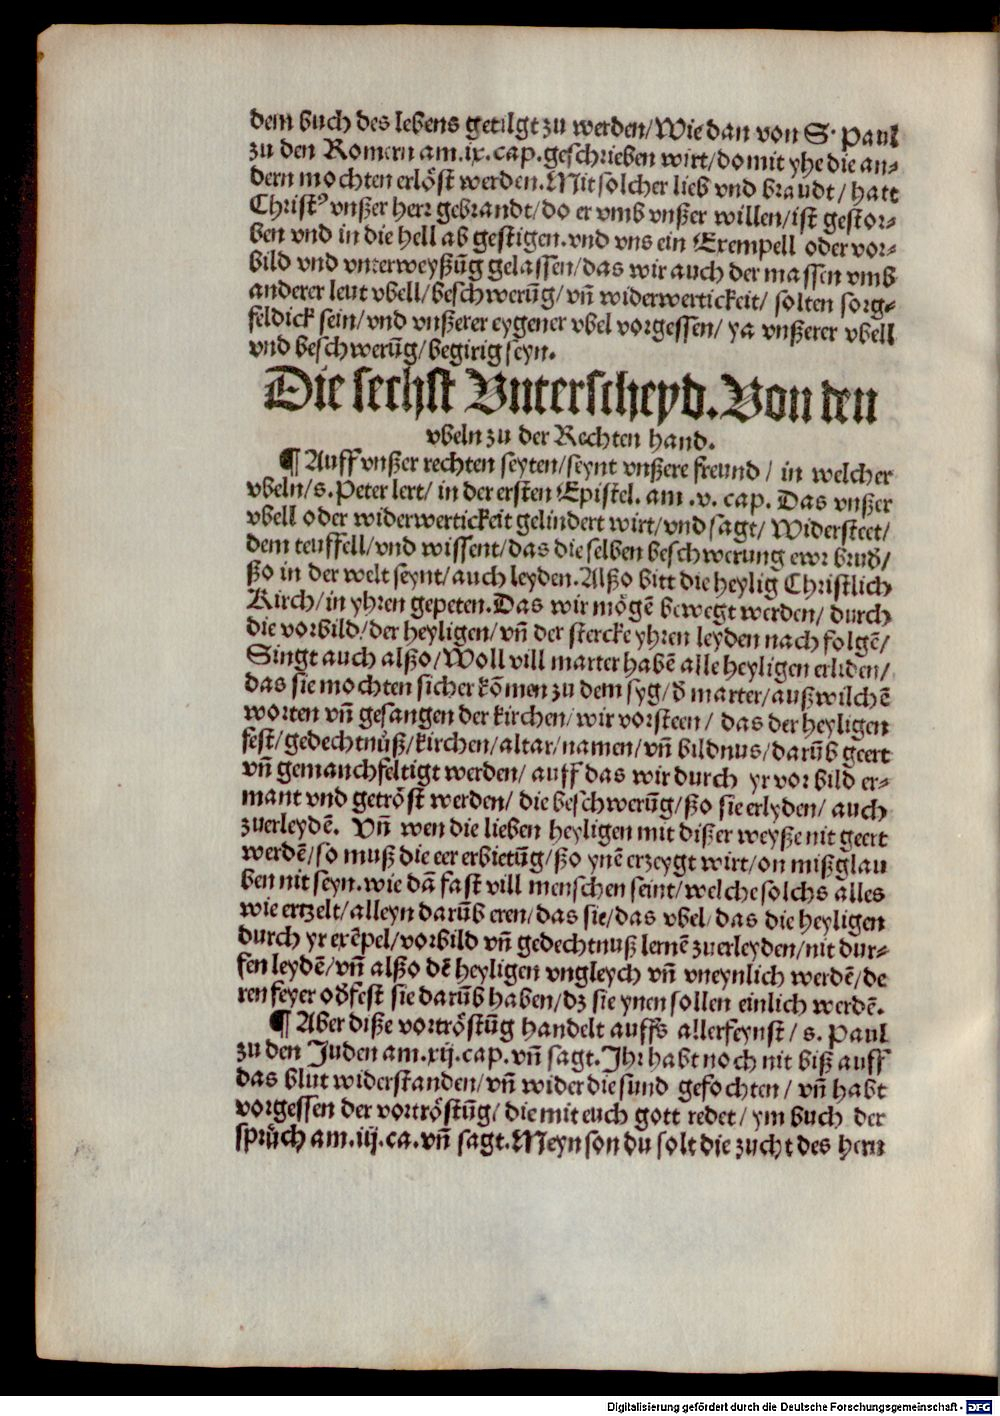 dem buch des lebens getilgt zu werden/Wie dan von S. Paul
zu den Romern am.ix.cap.geschrieben wirt/domit yhe die an-
dern mochten erlöst werden.Mit solcher lieb vnd brandt/ hatt
Christꝰ vnßer herr gebrandt/do er vmb vnßer willen/ist gestor-
ben vnd in die hell ab gestigen.vnd vns ein Exempell oder vor-
bild vnd vnterweyßūg gelassen/das wir auch der massen vmb
anderer leut vbell/beschwerūg/vn̄ widerwertickeit/ solten sorg-
feldick sein/vnd vnßerer eygener vbel vorgessen/ ya vnßerer vbell
vnd beschwerūg/begirig seyn.
Die sechst Vnterscheyd.Von den
vbeln zu der Rechten hand.
¶ Auff vnßer rechten seyten/seynt vnßere freund / in welcher
vbeln/s.Peter lert/ in der ersten Epistel. am .v. cap. Das vnßer
vbell oder widerwertickeit gelindert wirt/vnd sagt/ Widersteet/
dem teuffell/vnd wissent/das die selben beschwerung ewr brud̄/
ßo in der welt seynt/auch leyden.Alßo bitt die heylig Christlich
Kirch/in yhren gepeten.Das wir mögē bewegt werden/ durch
die vorbild/der heyligen/vn̄ der stercke yhren leyden nach folgē/
Singt auch alßo/Woll vill marter habē alle heyligen erliden/
das sie mochten sicher kōmen zu dem syg/d̄ marter/auß wilchē
worten vn̄ gesangen der kirchen/wir vorsteen/ das der heyligen
fest/gedechtnüß/kirchen/altar/namen/vn̄ bildnus/darūb geert
vn̄ gemanchfeltigt werden/ auff das wir durch yr vorbild er-
mant vnd getröst werden/ die beschwerūg/ßo sie erlyden/ auch
zuerleydē. Vn̄ wen die lieben heyligen mit dißer weyße nit geert
werdē/so muß die eer erbietūg/ßo ynē erzeygt wirt/on mißglau
ben nit seyn.wie dā fast vill menschen seint/welche solchs alles
wie ertzelt/alleyn darūb eren/das sie/das vbel/das die heyligen
durch yr exēpel/vorbild vn̄ gedechtnuß lernē zuerleyden/nit dur-
fen leydē/vn̄ alßo dē heyligen vngleych vn̄ vneynlich werdē/de
ren feyer od̄ fest sie darūb haben/dz sie ynen sollen einlich werdē.
¶ Aber diße vortröstūg handelt auffs allerfeynst/ s. Paul
zu den Juden am.xij.cap.vn̄ sagt.Jhr habt noch nit biß auff
das blut widerstanden/vn̄ wider die sünd gefochten/ vn̄ habt
vorgessen der vortröstūg/ die mit euch gott redet/ ym buch der
sprüch am.iij.ca.vn̄ sagt.Meyn son du solt die zucht des herrn
Digitalisierung gefördert durch die Deutsche Forschungsgemeinschaft - DFG